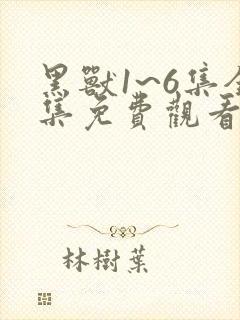 黑獸1~6集全
集免費觀看
林樹葉